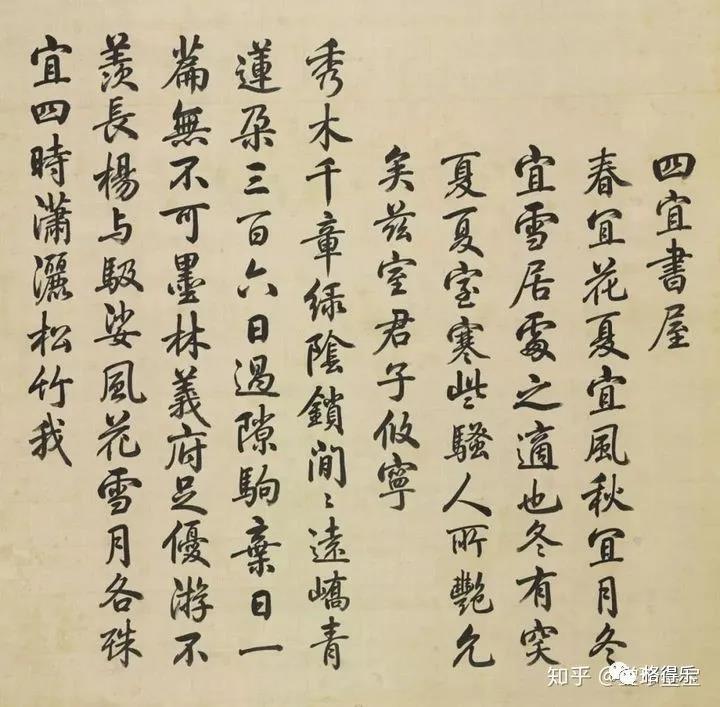 四宜書屋
春宜花夏宜風秋宜月冬
宜雪居處之適也冬有突
夏夏室寒些騷人所艷允
矣茲室君子攸寧
秀木千章緑陰鎖閒〻遠嶠青
蓮朶三百六日過隙駒棄日一
篇無不可墨林義府足優游不
羨長楊与馺娑風花雪月各殊
宜四時瀟灑松竹我
知乎 @
格得乐